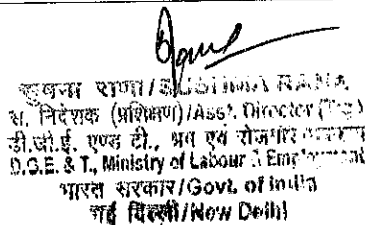 सुषमा राणा/SUSHMA RANA
स. निदेशक (प्रशिक्षण)/Asst. Director (Trg.)
डी.जी.ई. एण्ड टी., श्रम एवं रोजगार मंत्रालय
D.G.E. & T., Ministry of Labour & Employment
भारत सरकार/Govt. of India
नई दिल्ली/New Delhi